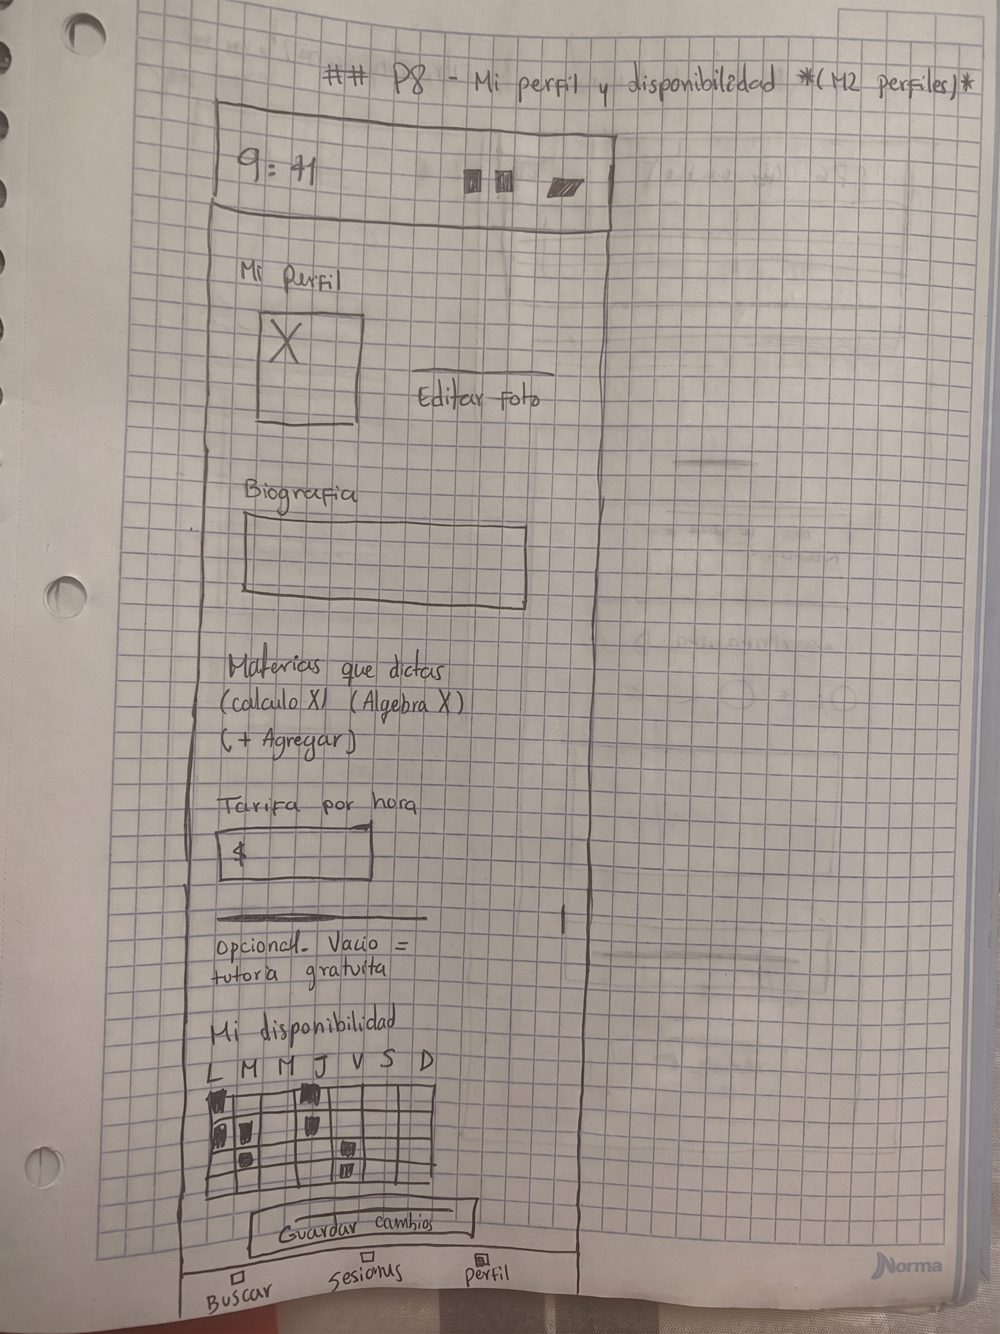 ## P8 - Mi perfil y disponibilidad *(M2 perfiles)*
9:41
Mi perfil
X
Editar foto
Biografia
Materias que dictas
(calculo X) (Algebra X)
(+ Agregar)
Tarifa por hora
$
opcional. Vacio =
tutoria gratuita
Mi disponibilidad
L M M J V S D
Guardar cambios
Buscar sesiones perfil
Norma